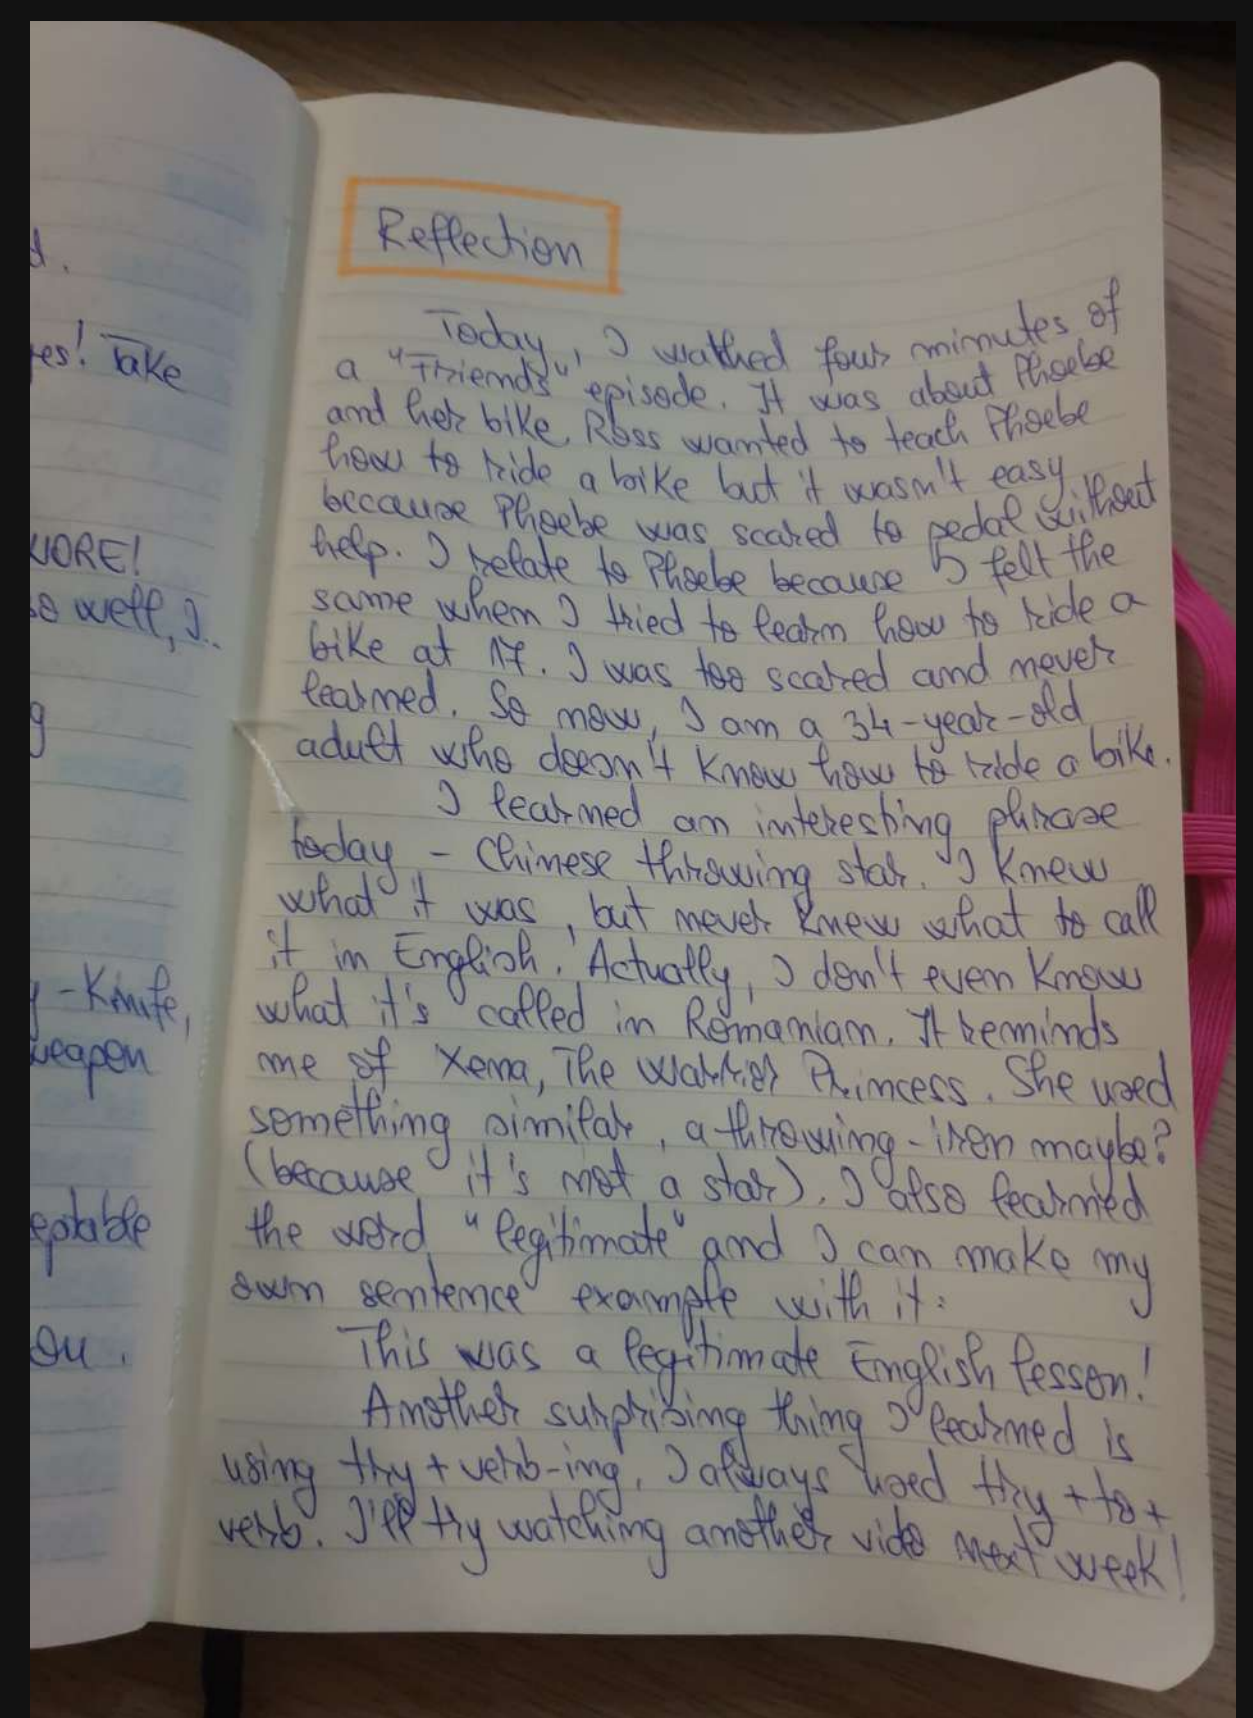 d.
res! Take
MORE!
so well, I..
g
y - Knife,
weapon
eptable
ou.
Reflection
Today, I wathed four minutes of
a "Friends" episode. It was about Phoebe
and her bike. Ross wanted to teach Phoebe
how to ride a bike but it wasn't easy
because Phoebe was scared to pedal without
help. I relate to Phoebe because I felt the
same when I tried to learn how to ride a
bike at 17. I was too scared and never
learned. So now, I am a 34-year-old
adult who doesn't know how to ride a bike.
I learned an interesting phrase
today - Chinese throwing star. I knew
what it was, but never knew what to call
it in English. Actually, I don't even know
what it's called in Romanian. It reminds
me of Xena, The Warrior Princess. She used
something similar, a throwing-iron maybe?
(because it's not a star). I also learned
the word "legitimate" and I can make my
own sentence example with it:
This was a legitimate English lesson!
Another surprising thing I learned is
using try + verb-ing. I always used try + to +
verb. I'll try watching another vido next week!